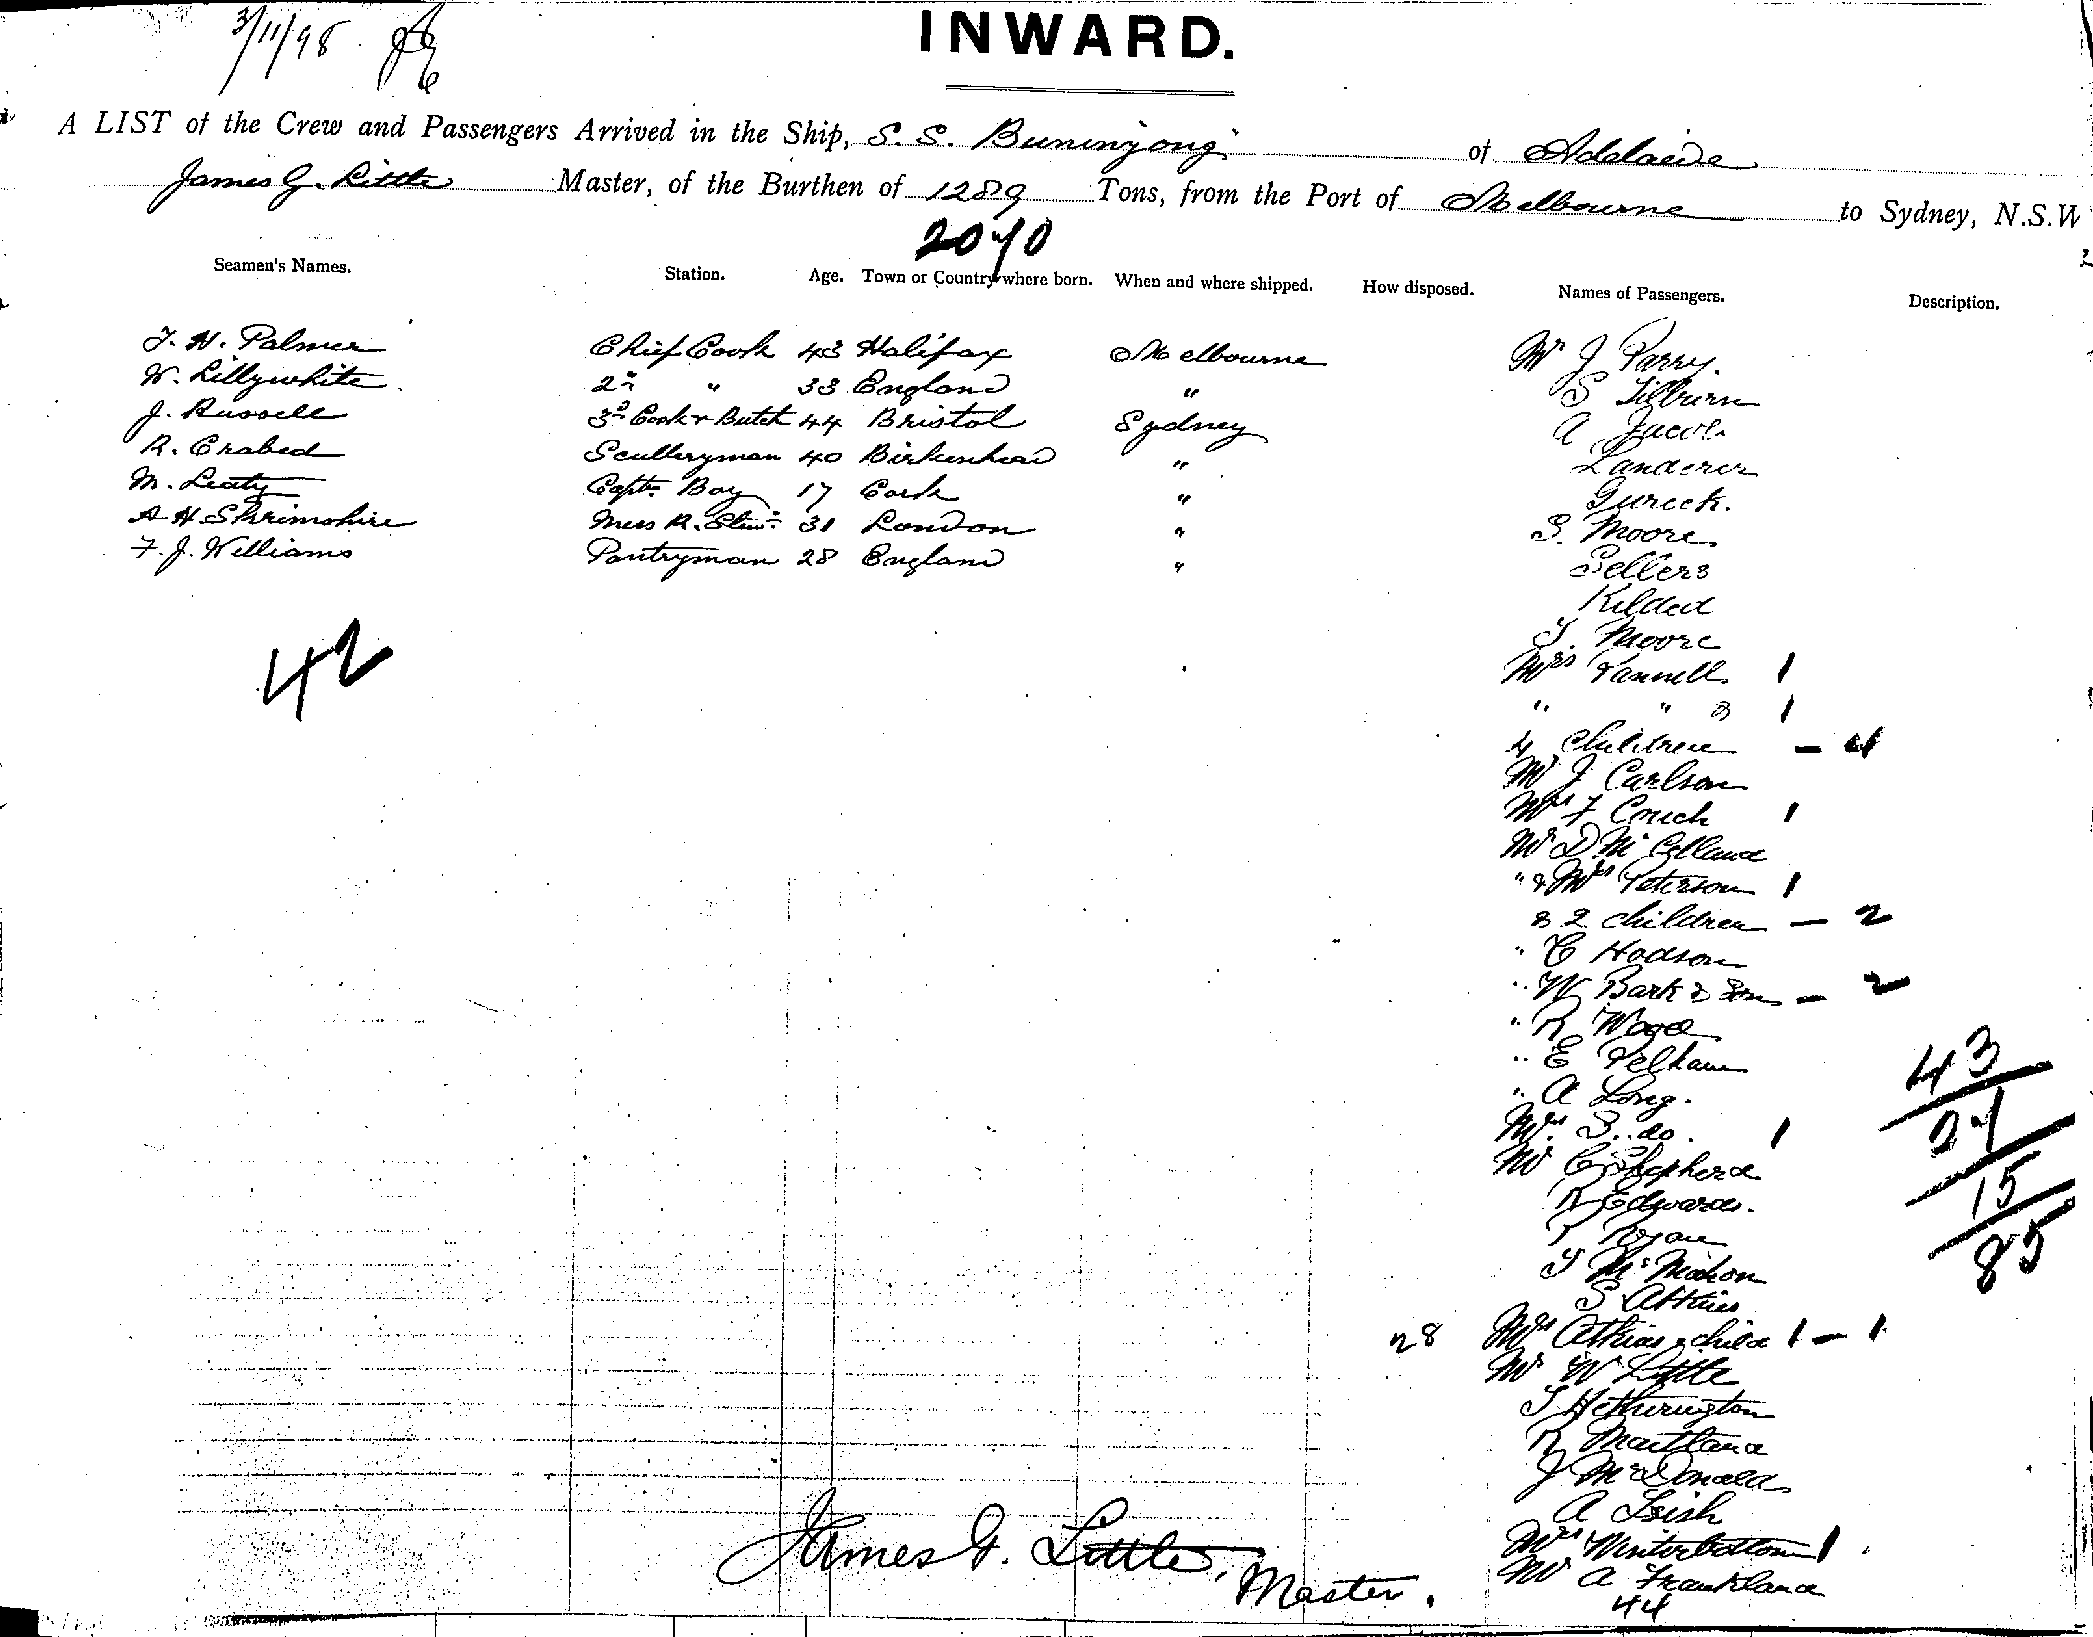 3/11/98
INWARD.
A LIST of the Crew and Passengers Arrived in the Ship, S. S. Buninyong of Adelaide
James G. Little Master, of the Burthen of 1289 Tons, from the Port of Melbourne to Sydney, N.S.W
2070
Seamen's Names. Station. Age. Town or Country where born. When and where shipped. How disposed. Names of Passengers. Description.
T. H. Palmer Chief Cook 43 Halifax Melbourne
W. Lillywhite 2nd " 33 England "
J. Russell 3rd Cook & Butch 44 Bristol Sydney
R. Crabed Sculleryman 40 Birkenhead "
M. Leaty Capts. Boy 17 Cork "
A H Shrimshire Mess R. Stew. 31 London "
F. J. Williams Pantryman 28 England "
42
Mr J Parry.
S Tilburn
A Jacob
Landerer
Gureck.
S. Moore
Sellers
Kilded
T. Moore
Mrs Pannell 1
" " & 1
4 Children — 4
Mr J Carlson
Mrs F Couch 1
Mr D Mc Clland
" & Mrs Peterson 1
& 2 children — 2
" C Hodson
" W Bark & Son — 2
" R Wood
" E Pelham
" A Long.
Mrs S. do. 1
Mr C Shepherd
R Edwards.
P Ryan
T McMahon
S Atkins
28 Mrs Atkins & child 1 — 1
Mr W Little
T Hetherington
R Maitland
J McDonald
A Leish
Mrs Winterbottom 1
Mr A Frankland
44
43
27
15
85
James G. Little, Master.